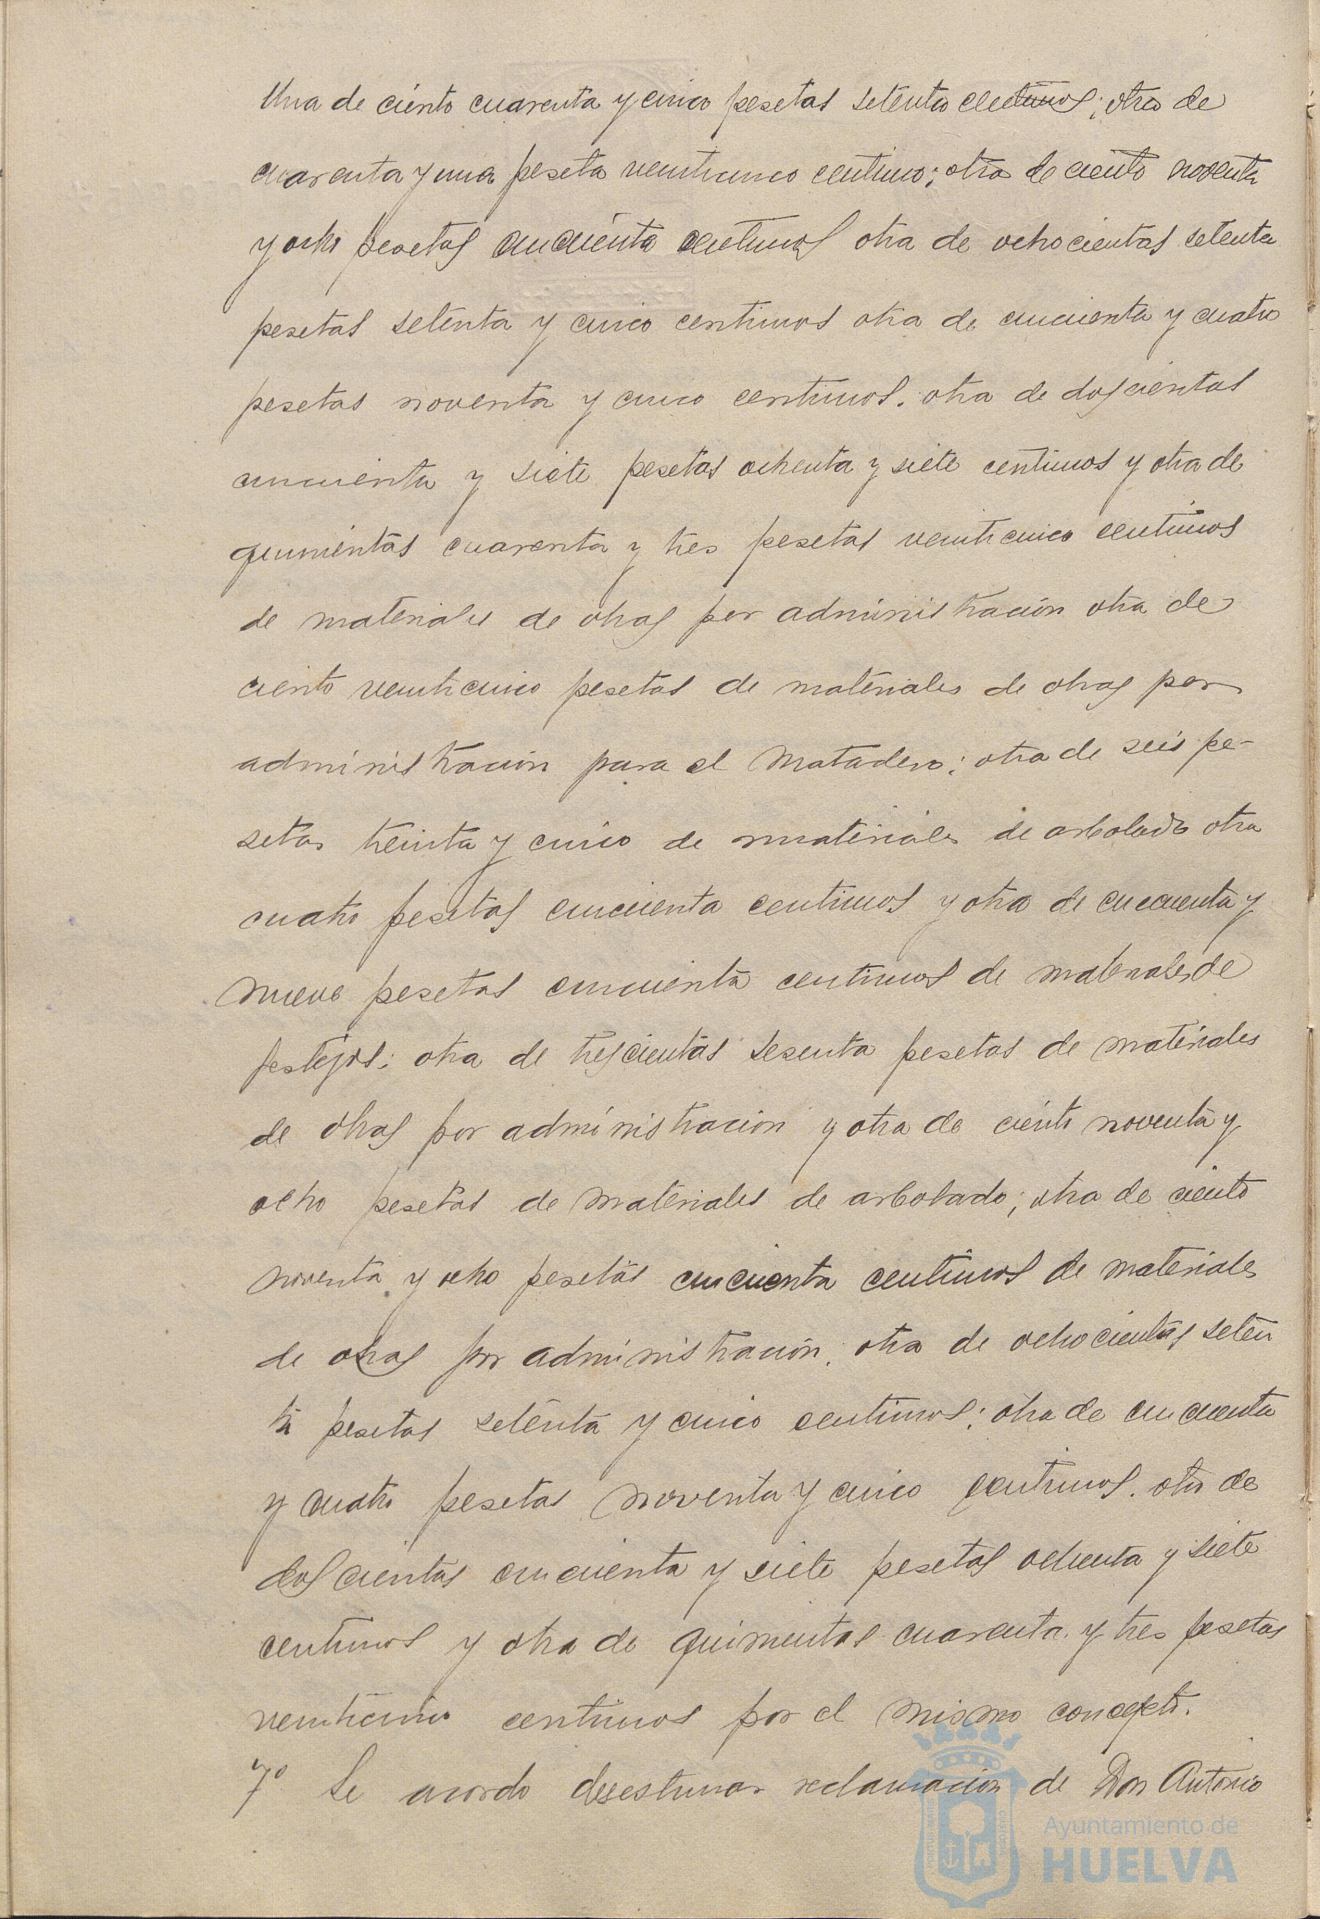 Una de ciento cuarenta y cinco pesetas setenta centimos; otra de
cuarenta y una peseta veinticinco centimo; otra de ciento noventa
y ocho pesetas cincuenta centimos otra de ochocientas setenta
pesetas setenta y cinco centimos otra de cincuenta y cuatro
pesetas noventa y cinco centimos. otra de doscientas
cincuenta y siete pesetas ochenta y siete centimos y otra de
quinientas cuarenta y tres pesetas veinticinco centimos
de materiales de obras por administración otra de
ciento veinticinco pesetas de materiales de obras por
administración para el Matadero; otra de seis pe-
setas treinta y cinco de materiales de arbolado otra
cuatro pesetas cincuenta centimos y otra de cincuenta y
nueve pesetas cincuenta centimos de materiales de
festejos; otra de trescientas sesenta pesetas de materiales
de obras por administración y otra de ciento noventa y
ocho pesetas de materiales de arbolado; otra de ciento
noventa y ocho pesetas cincuenta centimos de materiales
de obras por administración; otra de ochocientas seten
ta pesetas setenta y cinco centimos; otra de cincuenta
y cuatro pesetas noventa y cinco centimos. otra de
doscientas cincuenta y siete pesetas ochenta y siete
centimos y otra de quinientas cuarenta y tres pesetas
veinticinco centimos por el mismo concepto.
7º Se acordo desestimar reclamación de Don Antonio
Ayuntamiento de
HUELVA